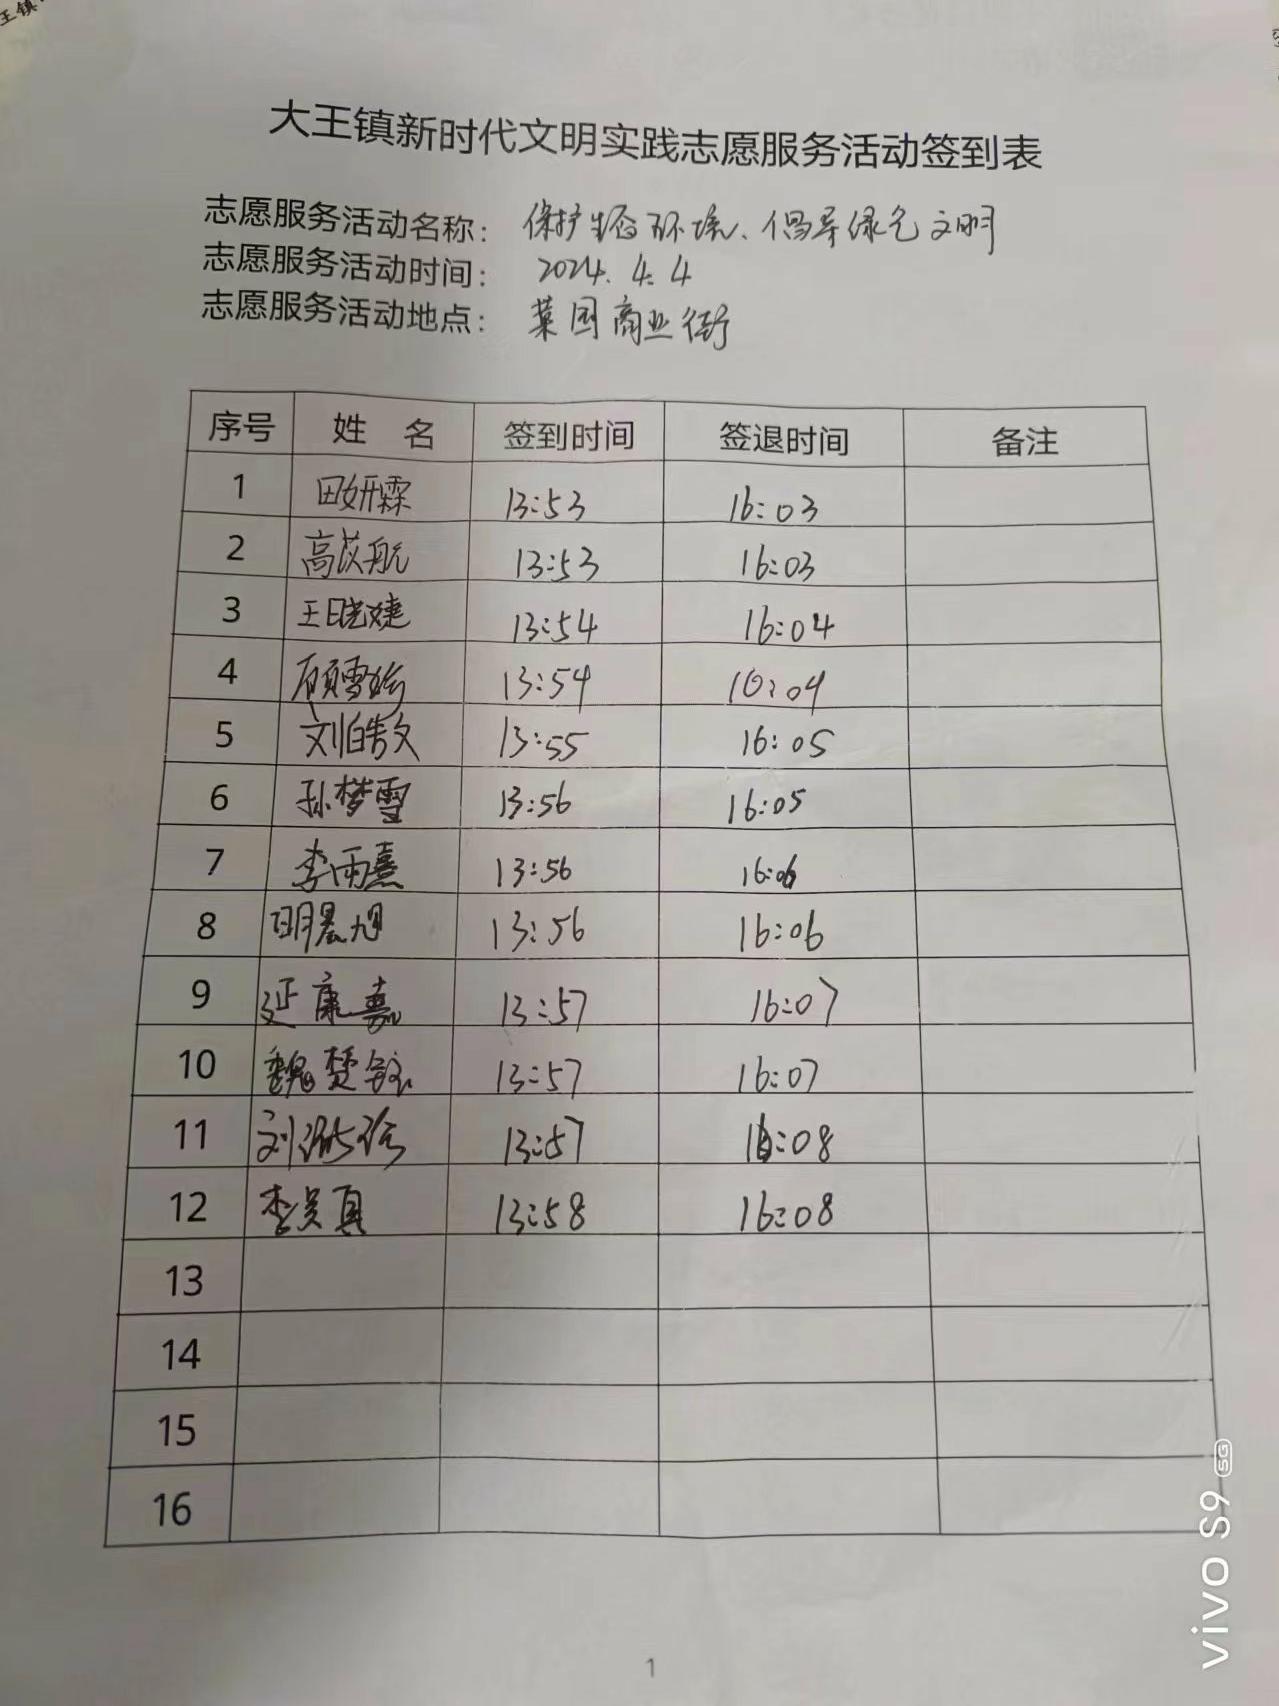 王镇
大王镇新时代文明实践志愿服务活动签到表
志愿服务活动名称： 保护生态环境、倡导绿色文明
志愿服务活动时间： 2024.4.4
志愿服务活动地点： 菜园商业街
序号 姓 名 签到时间 签退时间 备注
1 田妍霖 13:53 16:03
2 高苡航 13:53 16:03
3 王晓婕 13:54 16:04
4 顾雪 13:54 16:04
5 刘皓文 13:55 16:05
6 孙梦雪 13:56 16:05
7 李雨熹 13:56 16:06
8 明晨旭 13:56 16:06
9 延康嘉 13:57 16:07
10 魏楚 13:57 16:07
11 刘 13:57 16:08
12 李昊真 13:58 16:08
13
14
15
16
1
vivo S9 5G